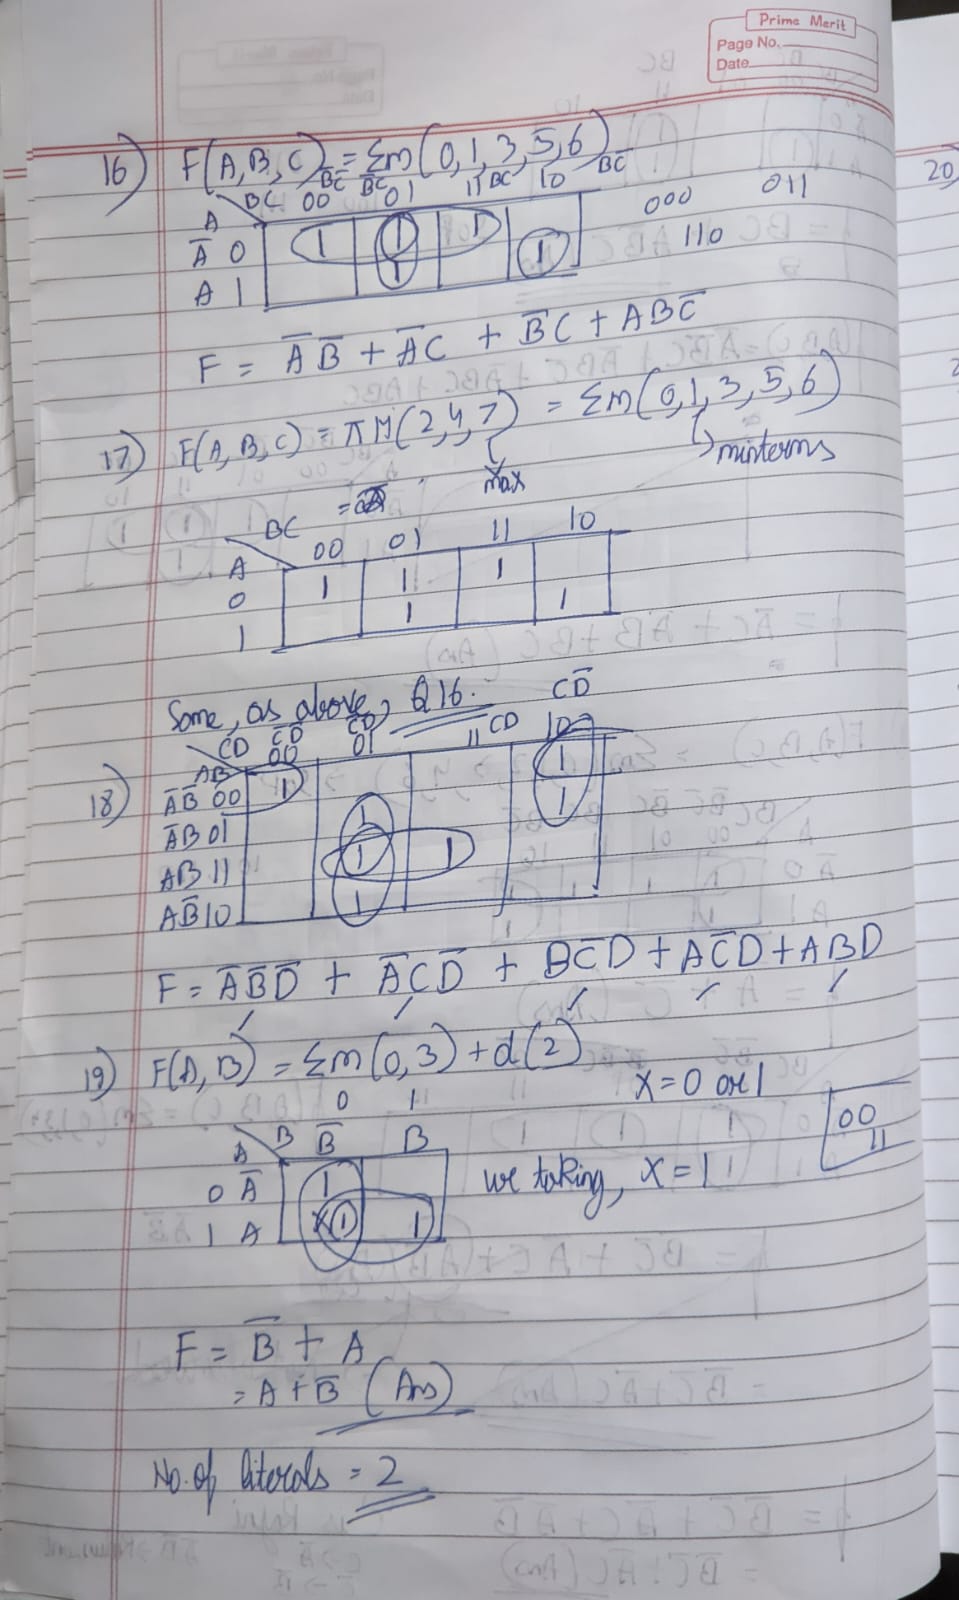 Prime Merit
Page No.
Date
16) F(A, B, C) = Σm(0, 1, 3, 5, 6)
B̅C̅ B̅C BC BC̅
BC 00 01 11 10
A
A̅ 0 1 1 1
A 1 1 1
000 011
110
F = A̅ B̅ + A̅C + B̅C + ABC̅
17) F(A, B, C) = πM(2, 4, 7) = Σm(0, 1, 3, 5, 6)
Max
↳ minterms
BC
00 01 11 10
A
0 1 1 1
1 1 1
Same, as above, Q16.
18)
C̅D̅ C̅D CD CD̅
CD 00 01 11 10
AB
A̅B̅ 00 1 1
A̅B 01 1 1
AB 11 1 1
AB̅ 10 1
F = A̅B̅D̅ + A̅CD̅ + BC̅D + AC̅D + ABD
19) F(A, B) = Σm(0, 3) + d(2)
X = 0 or 1
0 1
A B B̅ B
0 A̅ 1
1 A X 1 1
we taking, X = 1
00
11
F = B̅ + A
= A + B̅ (Ans)
No. of literals = 2
20)